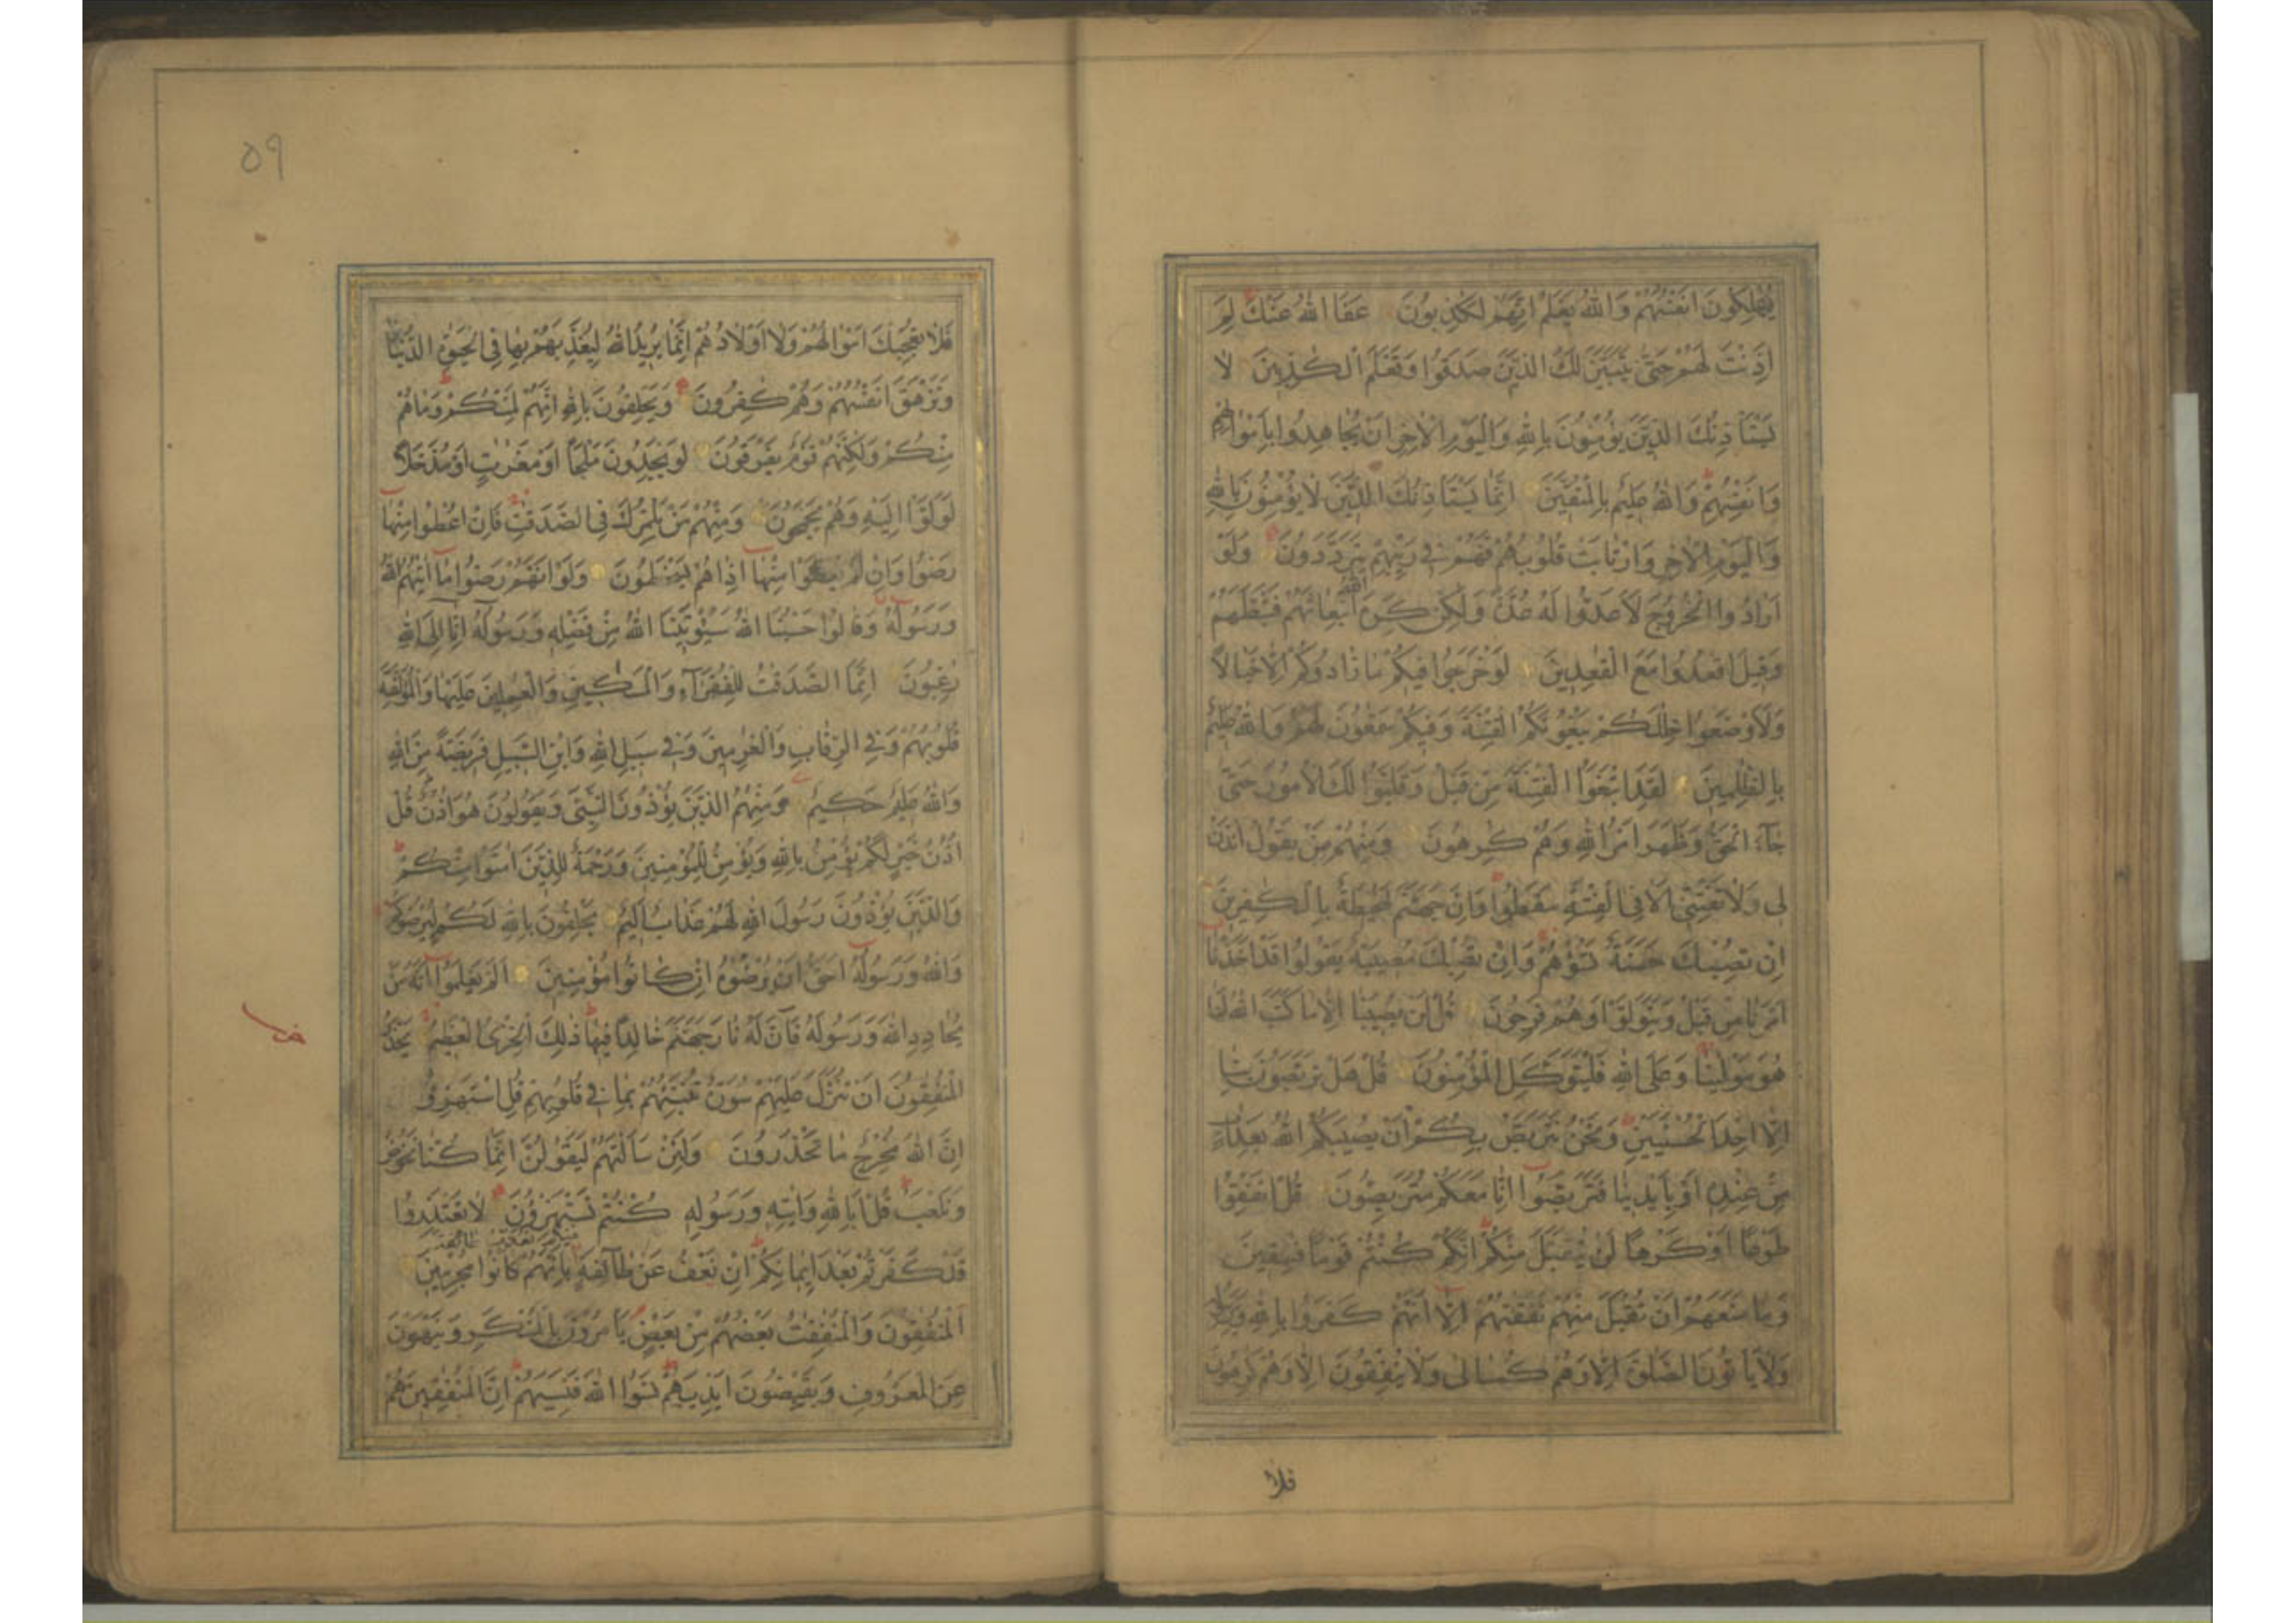 يُهْلِكُونَ اَنْفُسَهُمْ وَاللّٰهُ يَعْلَمُ اِنَّهُمْ لَكٰذِبُونَ عَفَا اللّٰهُ عَنْكَ لِمَ
اَذِنْتَ لَهُمْ حَتّٰى يَتَبَيَّنَ لَكَ الَّذِيْنَ صَدَقُوا وَتَعْلَمَ الْكٰذِبِيْنَ لَا
يَسْتَأْذِنُكَ الَّذِيْنَ يُؤْمِنُونَ بِاللّٰهِ وَالْيَوْمِ الْاٰخِرِ اَنْ يُجَاهِدُوا بِاَمْوَالِهِمْ
وَاَنْفُسِهِمْ وَاللّٰهُ عَلِيْمٌ بِالْمُتَّقِيْنَ اِنَّمَا يَسْتَأْذِنُكَ الَّذِيْنَ لَا يُؤْمِنُوْنَ بِاللّٰهِ
وَالْيَوْمِ الْاٰخِرِ وَارْتَابَتْ قُلُوبُهُمْ فَهُمْ فِي رَيْبِهِمْ يَتَرَدَّدُونَ وَلَوْ
اَرَادُوا الْخُرُوجَ لَاَعَدُّوا لَهُ عُدَّةً وَلٰكِنْ كَرِهَ اللّٰهُ انْبِعَاثَهُمْ فَثَبَّطَهُمْ
وَقِيْلَ اقْعُدُوا مَعَ الْقٰعِدِيْنَ لَوْ خَرَجُوا فِيْكُمْ مَا زَادُوكُمْ اِلَّا خَبَالًا
وَلَاَوْضَعُوا خِلٰلَكُمْ يَبْغُونَكُمُ الْفِتْنَةَ وَفِيْكُمْ سَمّٰعُونَ لَهُمْ وَاللّٰهُ عَلِيْمٌ
بِالظّٰلِمِيْنَ لَقَدِ ابْتَغَوُا الْفِتْنَةَ مِنْ قَبْلُ وَقَلَّبُوا لَكَ الْاُمُورَ حَتّٰى
جَآءَ الْحَقُّ وَظَهَرَ اَمْرُ اللّٰهِ وَهُمْ كٰرِهُونَ وَمِنْهُمْ مَنْ يَقُولُ ائْذَنْ
لِى وَلَا تَفْتِنِّى اَلَا فِى الْفِتْنَةِ سَقَطُوا وَاِنَّ جَهَنَّمَ لَمُحِيْطَةٌ بِالْكٰفِرِيْنَ
اِنْ تُصِبْكَ حَسَنَةٌ تَسُؤْهُمْ وَاِنْ تُصِبْكَ مُصِيْبَةٌ يَقُولُوا قَدْ اَخَذْنَا
اَمْرَنَا مِنْ قَبْلُ وَيَتَوَلَّوْا وَهُمْ فَرِحُونَ قُلْ لَنْ يُصِيْبَنَا اِلَّا مَا كَتَبَ اللّٰهُ لَنَا
هُوَ مَوْلٰينَا وَعَلَى اللّٰهِ فَلْيَتَوَكَّلِ الْمُؤْمِنُونَ قُلْ هَلْ تَرَبَّصُونَ بِنَا
اِلَّا اِحْدَى الْحُسْنَيَيْنِ وَنَحْنُ نَتَرَبَّصُ بِكُمْ اَنْ يُصِيْبَكُمُ اللّٰهُ بِعَذَابٍ
مِنْ عِنْدِهِ اَوْ بِاَيْدِيْنَا فَتَرَبَّصُوا اِنَّا مَعَكُمْ مُتَرَبِّصُونَ قُلْ اَنْفِقُوا
طَوْعًا اَوْ كَرْهًا لَنْ يُتَقَبَّلَ مِنْكُمْ اِنَّكُمْ كُنْتُمْ قَوْمًا فٰسِقِيْنَ
وَمَا مَنَعَهُمْ اَنْ تُقْبَلَ مِنْهُمْ نَفَقٰتُهُمْ اِلَّا اَنَّهُمْ كَفَرُوا بِاللّٰهِ وَبِرَسُولِهِ
وَلَا يَأْتُونَ الصَّلٰوةَ اِلَّا وَهُمْ كُسَالٰى وَلَا يُنْفِقُونَ اِلَّا وَهُمْ كٰرِهُونَ
فلا
٥٩
فَلَا تُعْجِبْكَ اَمْوَالُهُمْ وَلَا اَوْلَادُهُمْ اِنَّمَا يُرِيْدُ اللّٰهُ لِيُعَذِّبَهُمْ بِهَا فِى الْحَيٰوةِ الدُّنْيَا
وَتَزْهَقَ اَنْفُسُهُمْ وَهُمْ كٰفِرُونَ وَيَحْلِفُونَ بِاللّٰهِ اِنَّهُمْ لَمِنْكُمْ وَمَا هُمْ
مِنْكُمْ وَلٰكِنَّهُمْ قَوْمٌ يَفْرَقُونَ لَوْ يَجِدُونَ مَلْجَأً اَوْ مَغٰرٰتٍ اَوْ مُدَّخَلًا
لَوَلَّوْا اِلَيْهِ وَهُمْ يَجْمَحُونَ وَمِنْهُمْ مَنْ يَلْمِزُكَ فِى الصَّدَقٰتِ فَاِنْ اُعْطُوا مِنْهَا
رَضُوا وَاِنْ لَمْ يُعْطَوْا مِنْهَا اِذَا هُمْ يَسْخَطُونَ وَلَوْ اَنَّهُمْ رَضُوا مَا اٰتٰهُمُ اللّٰهُ
وَرَسُولُهُ وَقَالُوا حَسْبُنَا اللّٰهُ سَيُؤْتِيْنَا اللّٰهُ مِنْ فَضْلِهِ وَرَسُولُهُ اِنَّا اِلَى اللّٰهِ
رٰغِبُونَ اِنَّمَا الصَّدَقٰتُ لِلْفُقَرَآءِ وَالْمَسٰكِيْنِ وَالْعٰمِلِيْنَ عَلَيْهَا وَالْمُؤَلَّفَةِ
قُلُوبُهُمْ وَفِي الرِّقَابِ وَالْغٰرِمِيْنَ وَفِي سَبِيْلِ اللّٰهِ وَابْنِ السَّبِيْلِ فَرِيْضَةً مِنَ اللّٰهِ
وَاللّٰهُ عَلِيْمٌ حَكِيْمٌ وَمِنْهُمُ الَّذِيْنَ يُؤْذُونَ النَّبِيَّ وَيَقُولُونَ هُوَ اُذُنٌ قُلْ
اُذُنُ خَيْرٍ لَكُمْ يُؤْمِنُ بِاللّٰهِ وَيُؤْمِنُ لِلْمُؤْمِنِيْنَ وَرَحْمَةٌ لِلَّذِيْنَ اٰمَنُوا مِنْكُمْ
وَالَّذِيْنَ يُؤْذُونَ رَسُولَ اللّٰهِ لَهُمْ عَذَابٌ اَلِيْمٌ يَحْلِفُونَ بِاللّٰهِ لَكُمْ لِيُرْضُوكُمْ
وَاللّٰهُ وَرَسُولُهُ اَحَقُّ اَنْ يُرْضُوهُ اِنْ كَانُوا مُؤْمِنِيْنَ اَلَمْ يَعْلَمُوا اَنَّهُ مَنْ
يُحَادِدِ اللّٰهَ وَرَسُولَهُ فَاَنَّ لَهُ نَارَ جَهَنَّمَ خَالِدًا فِيْهَا ذٰلِكَ الْخِزْىُ الْعَظِيْمُ يَحْذَرُ
الْمُنٰفِقُونَ اَنْ تُنَزَّلَ عَلَيْهِمْ سُورَةٌ تُنَبِّئُهُمْ بِمَا فِي قُلُوبِهِمْ قُلِ اسْتَهْزِؤُا
اِنَّ اللّٰهَ مُخْرِجٌ مَا تَحْذَرُونَ وَلَئِنْ سَاَلْتَهُمْ لَيَقُولُنَّ اِنَّمَا كُنَّا نَخُوضُ
وَنَلْعَبُ قُلْ اَبِاللّٰهِ وَاٰيٰتِهِ وَرَسُولِهِ كُنْتُمْ تَسْتَهْزِؤُنَ لَا تَعْتَذِرُوا
قَدْ كَفَرْتُمْ بَعْدَ اِيْمَانِكُمْ اِنْ نَعْفُ عَنْ طَآئِفَةٍ مِنْكُمْ نُعَذِّبْ طَائِفَةً بِاَنَّهُمْ كَانُوا مُجْرِمِيْنَ
اَلْمُنٰفِقُونَ وَالْمُنٰفِقٰتُ بَعْضُهُمْ مِنْ بَعْضٍ يَأْمُرُونَ بِالْمُنْكَرِ وَيَنْهَوْنَ
عَنِ الْمَعْرُوفِ وَيَقْبِضُونَ اَيْدِيَهُمْ نَسُوا اللّٰهَ فَنَسِيَهُمْ اِنَّ الْمُنٰفِقِيْنَ هُمُ